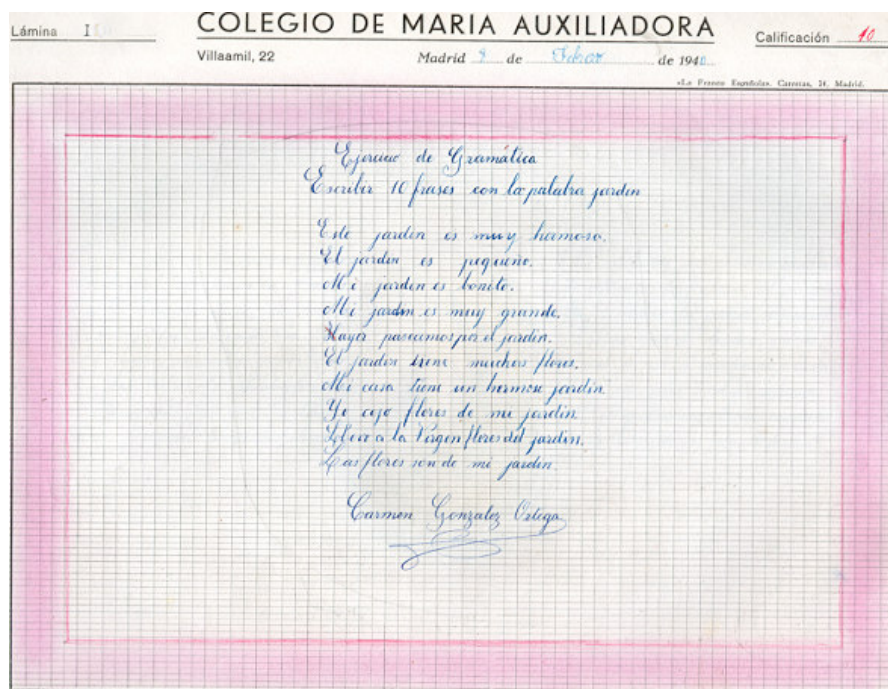 Lámina I
COLEGIO DE MARIA AUXILIADORA
Calificación 10
Villaamil, 22
Madrid 9 de de 1940
«La Franco Española». Carretas, 14. Madrid.
Ejercicio de Gramática
Escribir 10 frases con la palabra jardin
Este jardin es muy hermoso.
El jardin es pequeño.
Mi jardin es bonito.
Mi jardin es muy grande.
por el jardin.
El jardin tiene muchas flores.
Mi casa tiene un hermoso jardin.
Yo cojo flores de mi jardin
Llevo a la Virgen flores del jardin.
Las flores son de mi jardin.
Carmen Gonzalez Ortega